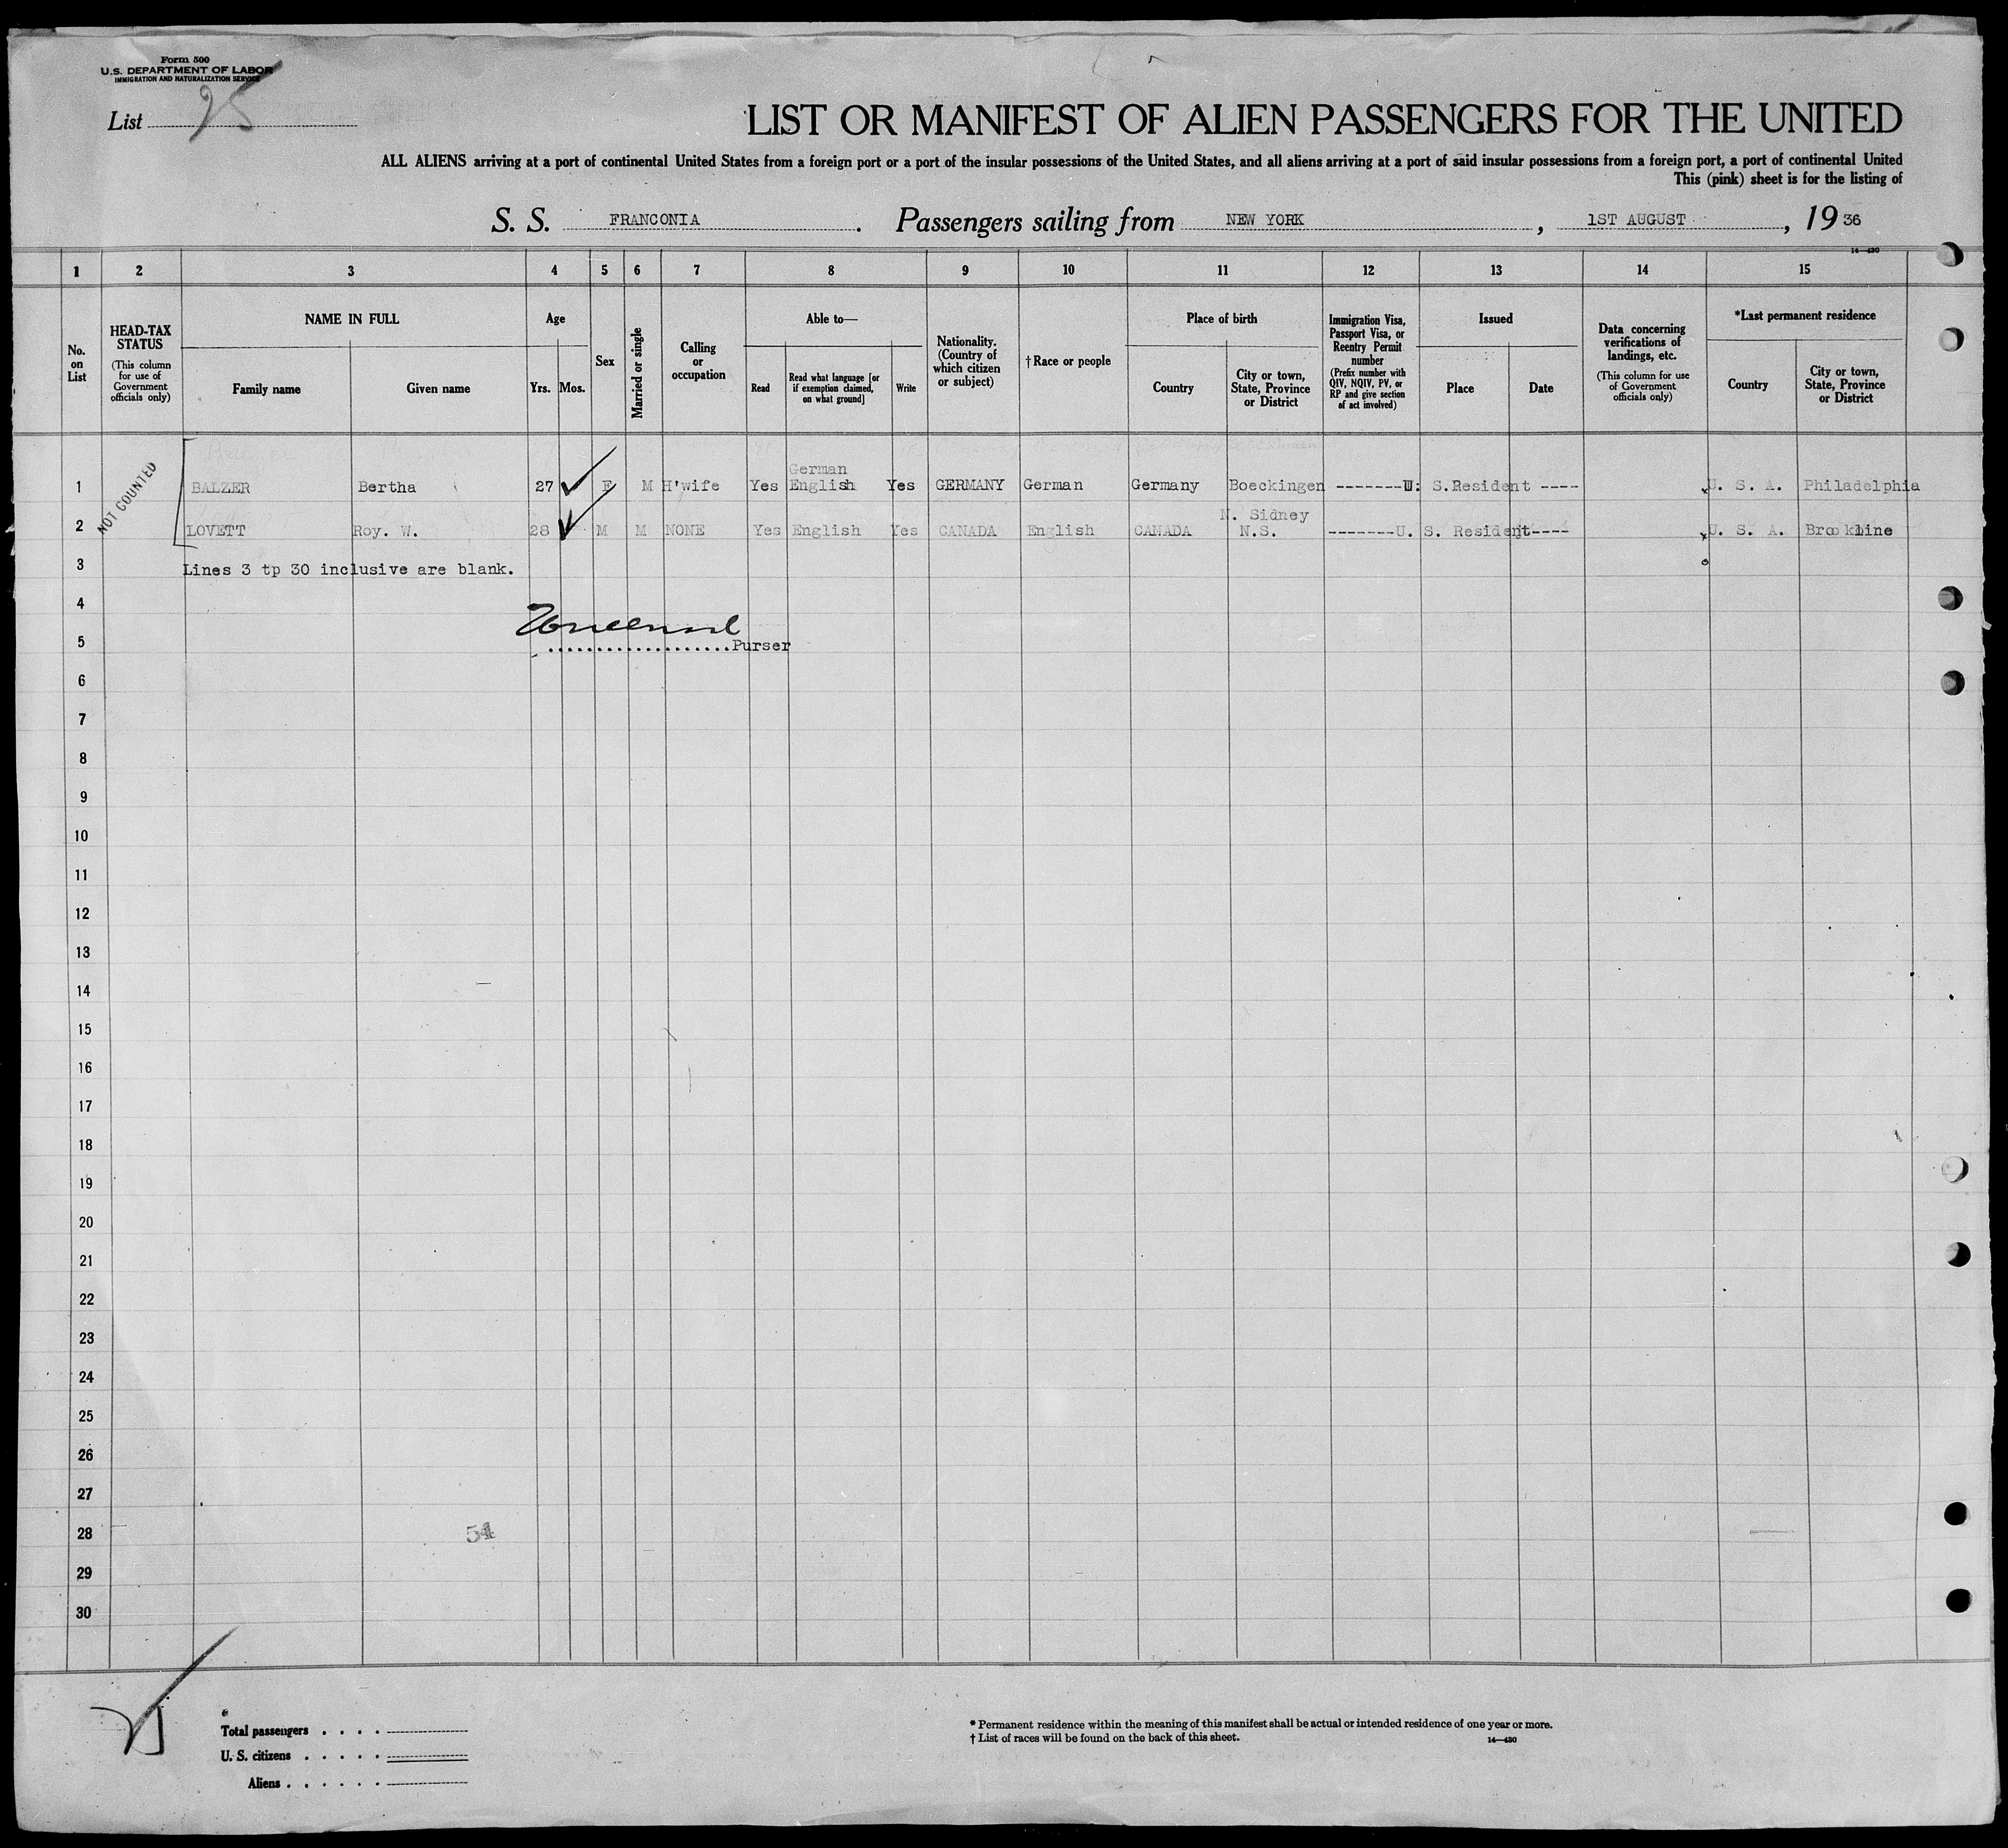 Form 500
U.S. DEPARTMENT OF LABOR
IMMIGRATION AND NATURALIZATION SERVICE
List 25
LIST OR MANIFEST OF ALIEN PASSENGERS FOR THE UNITED
ALL ALIENS arriving at a port of continental United States from a foreign port or a port of the insular possessions of the United States, and all aliens arriving at a port of said insular possessions from a foreign port, a port of continental United
This (pink) sheet is for the listing of
S. S. FRANCONIA. Passengers sailing from NEW YORK, 1ST AUGUST, 1936
14—430
1 2 3 4 5 6 7 8 9 10 11 12 13 14 15
No. on List
HEAD-TAX STATUS
(This column for use of Government officials only)
NAME IN FULL
Family name Given name
Age
Yrs. Mos.
Sex
Married or single
Calling or occupation
Able to—
Read
Read what language [or if exemption claimed, on what ground]
Write
Nationality. (Country of which citizen or subject)
†Race or people
Place of birth
Country
City or town, State, Province or District
Immigration Visa, Passport Visa, or Reentry Permit number
(Prefix number with QIV, NQIV, PV, or RP and give section of act involved)
Issued
Place Date
Data concerning verifications of landings, etc.
(This column for use of Government officials only)
*Last permanent residence
Country
City or town, State, Province or District
NOT COUNTED
German
1 BALZER Bertha 27 F M H'wife Yes English Yes GERMANY German Germany Boeckingen -------U. S.Resident ---- U. S. A. Philadelphia
N. Sidney
2 LOVETT Roy. W. 28 M M NONE Yes English Yes CANADA English CANADA N.S. -------U. S. Resident---- U. S. A. Brookline
3 Lines 3 tp 30 inclusive are blank.
4
5 ...................Purser
6
7
8
9
10
11
12
13
14
15
16
17
18
19
20
21
22
23
24
25
26
27
28 54
29
30
Total passengers . . . .
U. S. citizens . . . . .
Aliens . . . . . .
* Permanent residence within the meaning of this manifest shall be actual or intended residence of one year or more.
† List of races will be found on the back of this sheet.
14—430